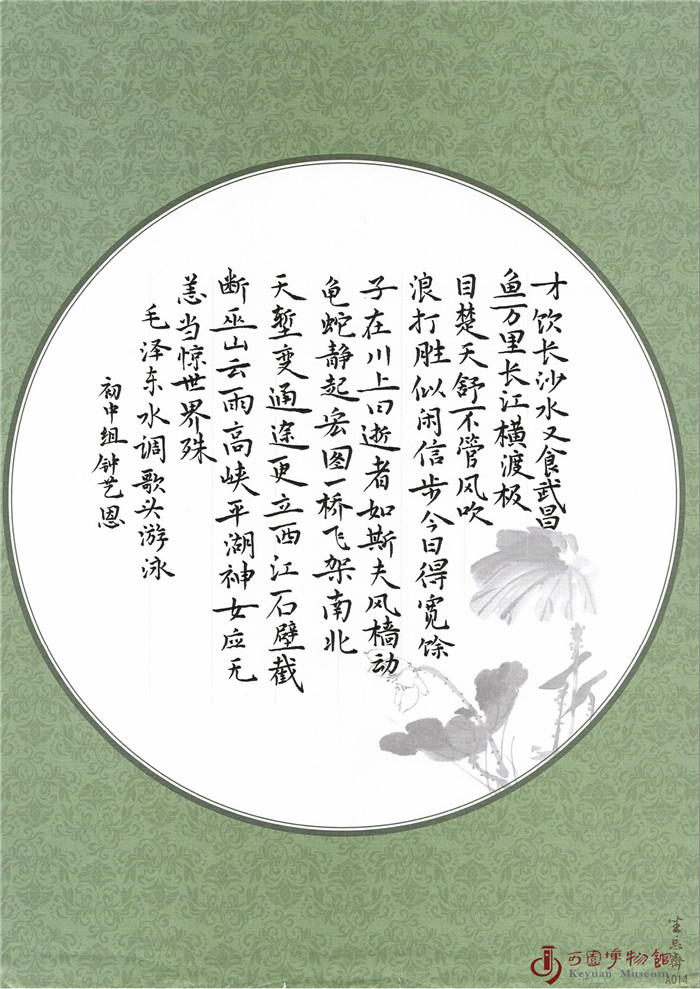 才饮长沙水又食武昌
鱼万里长江横渡极
目楚天舒不管风吹
浪打胜似闲信步今日得宽馀
子在川上曰逝者如斯夫风樯动
龟蛇静起宏图一桥飞架南北
天堑变通途更立西江石壁截
断巫山云雨高峡平湖神女应无
恙当惊世界殊
毛泽东水调歌头游泳
初中组钟艺恩
可園博物館
Keyuan Museum
坐忘齋
A014